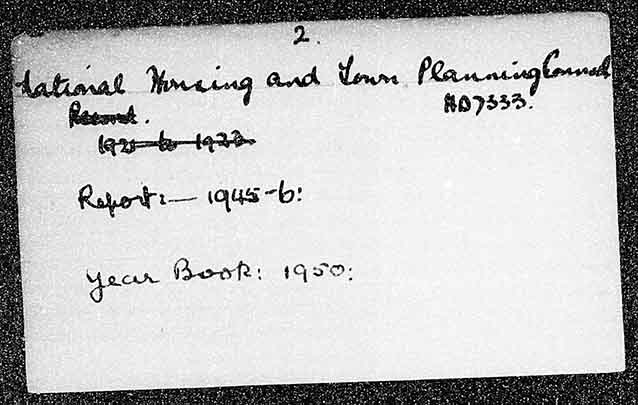 2.
National Housing and Town Planning Council
HD7333.
Record.
1921 to 1933.
Report:— 1945-6:
Year Book: 1950: